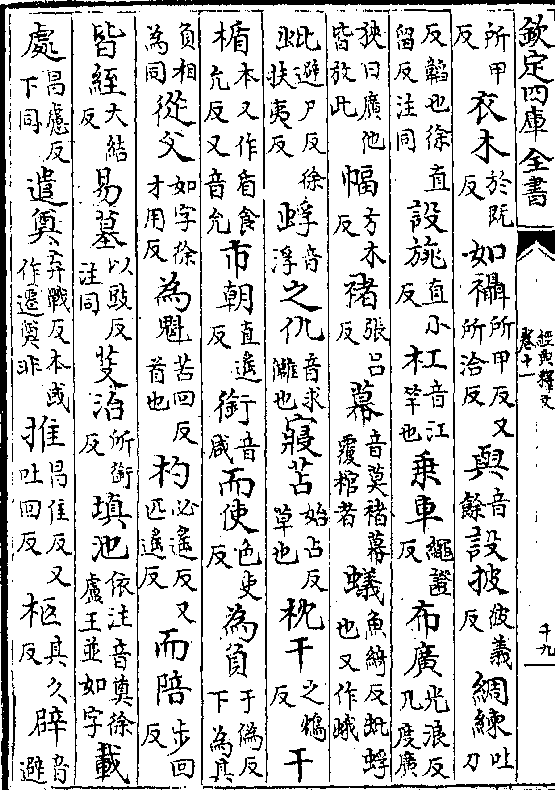 欽定四庫全書
經典釋文
卷十一
十九
所甲反衣木於既反如襵所甲反又所洽反與音餘設披彼義反綢練吐刀
反韜也徐直留反注同設旐直小反杠音江竿也乘車繩證反布廣光浪反凡度廣
狹曰廣他皆放此幅方木反褚張吕反幕音莫褚幕覆棺者蟻魚綺反蚍蜉也又作蛾
蚍避尸反徐扶夷反蜉音浮之仇音求讎也寢苫始占反草也枕干之鴆反干
楯本又作盾食允反又音允市朝直遥反銜音咸而使色吏反為負于偽反下為其
負相為同從父如字徐才用反為魁苦回反首也杓必遥反又匹遥反而陪步回反
皆絰大結反易墓以豉反注同芟治所銜反填池依注音奠徐盧王並如字載
處昌慮反下同遣奠弃戰反本或作遷奠非推昌佳反又吐回反柩其久反辟音避